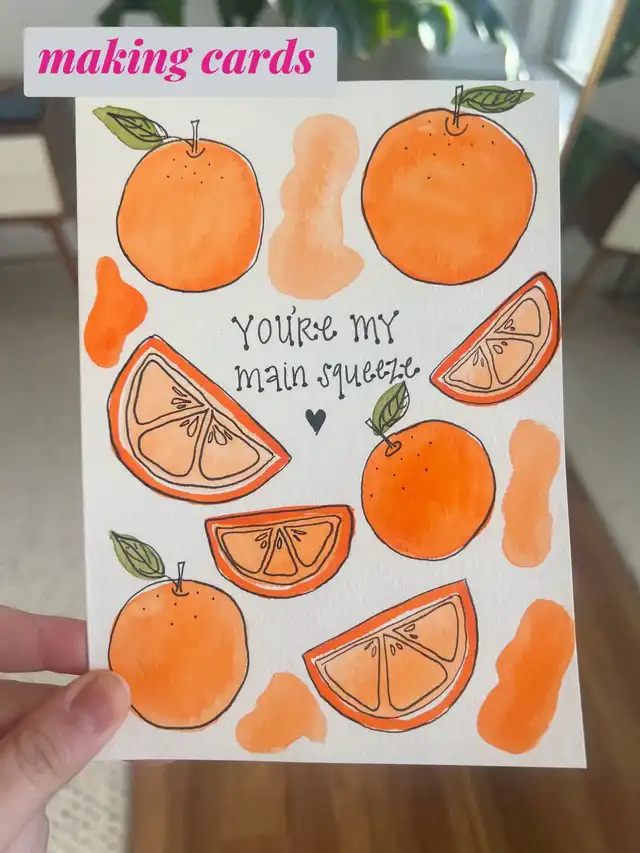 making cards
YOU'RE MY
main squeeze